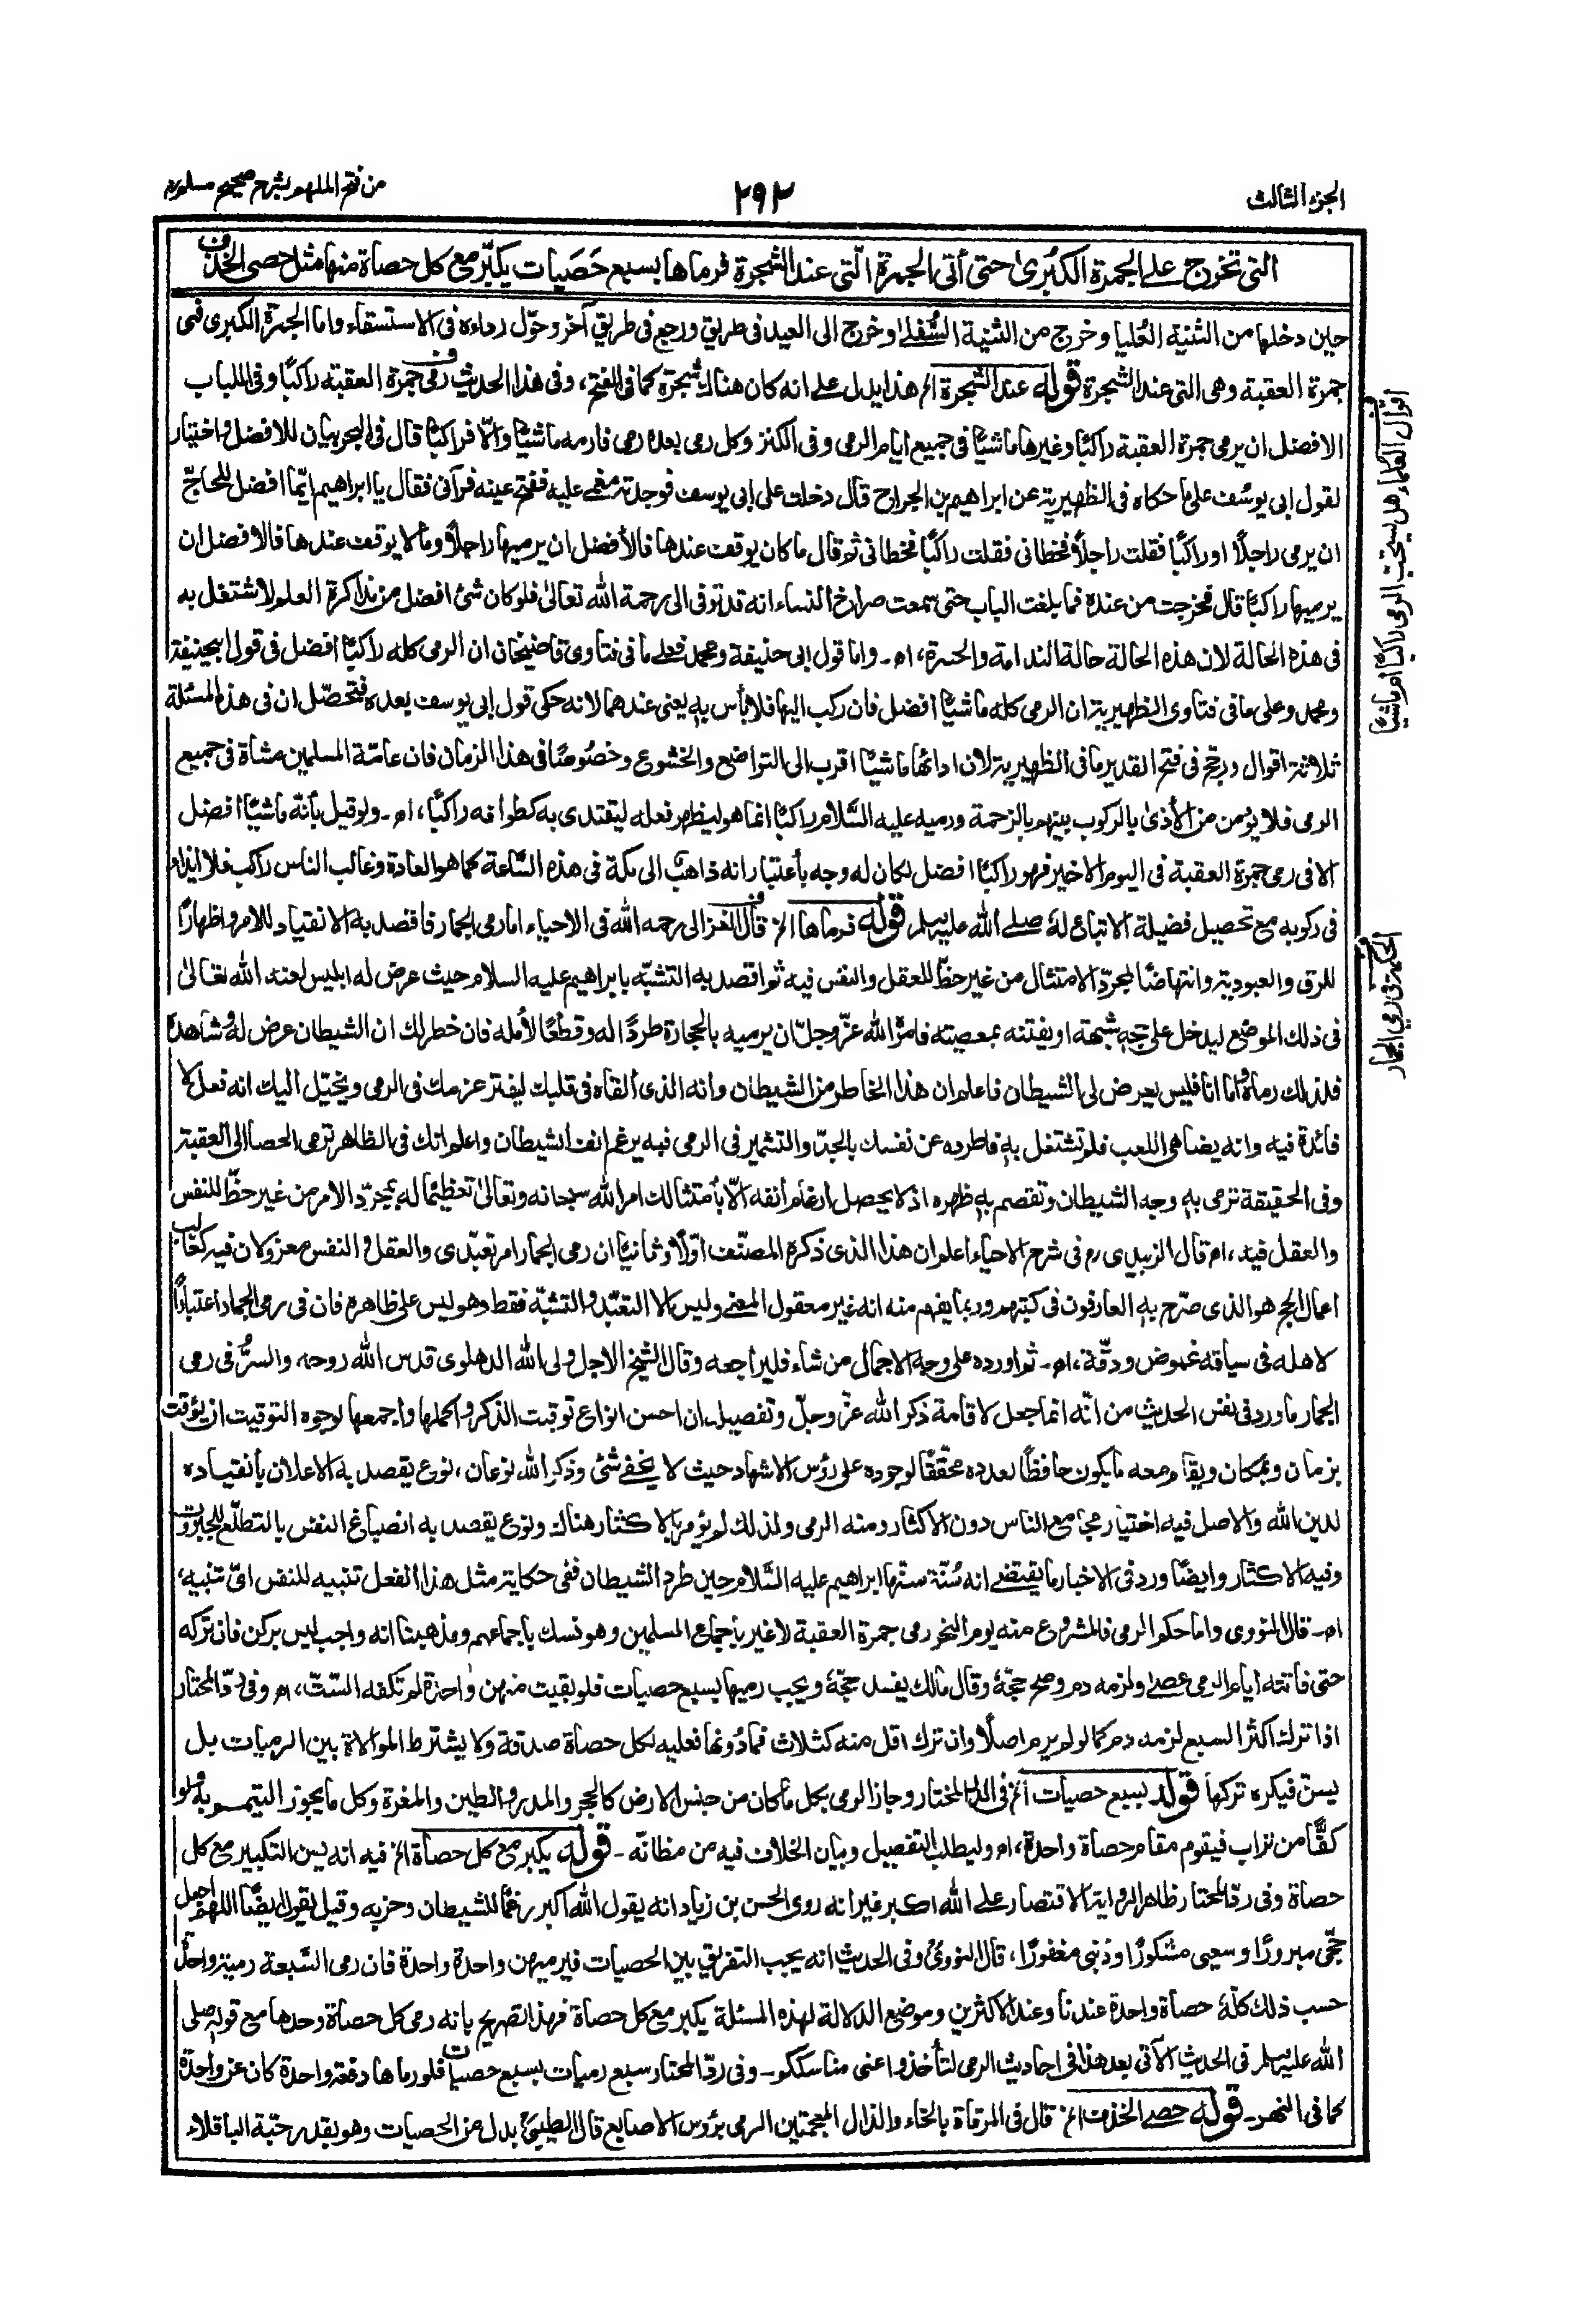 الجزء الثالث
٢٩٢
من فتح الملهم بشرح صحيح مسلم
التى تخرج على الجمرة الكبرى حتى أتى الجمرة التى عند الشجرة فرماها بسبع حصيات يكبّر مع كل حصاة منها مثل حصى الخذف
حين دخلها من الثنية العليا وخرج من الثنية السُّفلى وخرج الى العيد فى طريق ورجع فى طريق آخر وحوّل رداءه فى الاستسقاء واما الجمرة الكبرى فهى
جمرة العقبة وهى التى عند الشجرة قوله عند الشجرة الخ هذا يدل على انه كان هناك شجرة كما فى الفتح، وفى هذا الحديث رمى جمرة العقبة راكبًا وفى اللباب
الافضل ان يرمى جمرة العقبة راكبًا وغيرها ماشيًا فى جميع ايام الرمى وفى الكنز وكل رمى بعده رمى فارمه ماشيًا والّا فراكبًا قال فى البحر بيان للافضل واختيار
لقول ابى يوسف على ما حكاه فى الظهيرية عن ابراهيم بن الجراح قال دخلت على ابى يوسف فوجدته مغمى عليه ففتح عينه فرآنى فقال يا ابراهيم ايّما افضل للحاجّ
ان يرمى راجلًا او راكبًا فقلت راجلًا فخطانى فقلت راكبًا فخطانى ثم قال ما كان يوقف عندها فالأفضل ان يرميها راجلًا وما لا يوقف عندها فالافضل ان
يرميها راكبًا قال فخرجت من عنده فما بلغت الباب حتى سمعت صراخ النساء انه قد توفى الى رحمة الله تعالى فلو كان شئ افضل من مذاكرة العلم لاشتغل به
فى هذه الحالة لان هذه الحالة حالة الندامة والحسرة، اھ۔ واما قول ابى حنيفة ومحمد فعلى ما فى فتاوى قاضيخان ان الرمى كله راكبًا افضل فى قول ابيحنيفة
ومحمد وعلى ما فى فتاوى الظهيرية ان الرمى كله ماشيًا افضل فان ركب اليها فلا بأس به يعنى عندهما لانه حكى قول ابى يوسف بعده فتحصّل ان فى هذه المسئلة
ثلاثة اقوال ورجّح فى فتح القدير ما فى الظهيرية لان اداءها ماشيًا اقرب الى التواضع والخشوع وخصوصًا فى هذا الزمان فان عامّة المسلمين مشاة فى جميع
الرمى فلا يؤمن من الأذى بالركوب بينهم بالزحمة ورميه عليه السَّلام راكبًا انما هو ليظهر فعله ليقتدى به كطوافه راكبًا، اھ۔ ولو قيل بأنّه ماشيًا افضل
الا فى رمى جمرة العقبة فى اليوم الاخير فهو راكبًا افضل لكان له وجه بأعتبار انه ذاهب الى مكة فى هذه السَّاعة كما هو العادة وغالب الناس راكب فلا ايذاء
فى ركوبه مع تحصيل فضيلة الاتباع له صلى الله عليه وسلم قوله فرماها الخ قال الغزالى رحمه الله فى الاحياء اما رمى الجمار فاقصد به الانقياد للامر واظهارًا
للرق والعبودية وانتهاضًا لمجرّد الامتثال من غير حظّ للعقل والنفس فيه ثم اقصد به التشبّه بابراهيم عليه السلام حيث عرض له ابليس لعنه الله تعالى
فى ذلك الموضع ليدخل على حجه شبهة او يفتنه بمعصيته فامره الله عزّ وجلّ ان يرميه بالحجارة طردًا له وقطعًا لأمله فان خطر لك ان الشيطان عرض له وشاهده
فلذلك رماه واما انا فليس يعرض لى الشيطان فاعلم ان هذا الخاطر من الشيطان وانه الذى ألقاه فى قلبك ليفتر عزمك فى الرمى ويخيّل اليك انه فعل لا
فائدة فيه وانه يضاهى اللعب فلم تشتغل به فاطرده عن نفسك بالجدّ والتشمير فى الرمى فبه يرغم انف الشيطان واعلم انك فى الظاهر ترمى الحصا الى العقبة
وفى الحقيقة ترمى به وجه الشيطان وتقصم به ظهره اذ لا يحصل ارغام أنفه الّا بأمتثالك امر الله سبحانه وتعالى تعظيمًا له بمجرّد الامر من غير حظّ للنفس
والعقل فيه، اھ قال الزبيدى رح فى شرح الاحياء اعلم ان هذا الذى ذكره المصنّف اوّلًا وثانيًا ان رمى الجمار امر تعبّدى والعقل والنفس معزولان فيه كغالب
اعمال الحج هو الذى صرّح به العارفون فى كتبهم وربما يفهم منه انه غير معقول المعنى وليس الا التعبّد والتشبّه فقط وهو ليس على ظاهره فان فى رمى الجمار اعتبارًا
لاهله فى سياقه غموض ودقّة، اھ۔ ثم اورده على وجه الاجمال من شاء فليراجعه وقال الشيخ الاجل ولى الله الدهلوى قدس الله روحه، والسرُّ فى رمى
الجمار ما ورد فى نفس الحديث من انّه انما جعل لاقامة ذكر الله عزّ وجلّ وتفصيله ان احسن انواع توقيت الذكر واكملها واجمعها لوجوه التوقيت ان يؤقت
بزمان وبمكان ويقام معه ما يكون حافظًا لعدده محققًا لوجوده على رؤس الاشهاد حيث لا يخفى شئ وذكر الله نوعان، نوع يقصد به الاعلان بأنقياده
لدين الله والاصل فيه اختيار مجامع الناس دون الاكثار ومنه الرمى ولذلك لم يؤمر بالاكثار هناك ونوع يقصد به انصباغ النفس بالتطلّع للجبروت
وفيه الاكثار وايضًا ورد فى الاخبار ما يقتضى انه سُنّة سنّها ابراهيم عليه السَّلام حين طرد الشيطان ففى حكاية مثل هذا الفعل تنبيه للنفس اىّ تنبيه،
اھ۔ قال النووى واما حكم الرمى فالمشروع منه يوم النحر رمى جمرة العقبة لا غير بأجماع المسلمين وهو نسك بأجماعهم ومذهبنا انه واجب ليس بركن فان تركه
حتى فاتته ايام الرمى عصى ولزمه دم وصح حجّهٗ وقال مالك يفسد حجّهٗ ويجب رميها بسبع حصيات فلو بقيت منهن واحدة لم تكفه السّتّ، اھ وفى ردّ المحتار
اذا ترك اكثر السبع لزمه دم كما لو لم يرم اصلًا وان ترك اقل منه كثلاث فما دُونها فعليه لكل حصاة صدقة ولا يشترط الموالاة بين الرميات بل
يسنّ فيكره تركها قوله بسبع حصيات الخ فى الدر المختار وجاز الرمى بكل ما كان من جنس الارض كالحجر والمدر والطين والمغرة وكل ما يجوز التيمم به ولو
كفًّا من تراب فيقوم مقام حصاة واحدة، اھ وليطلب التفصيل وبيان الخلاف فيه من مظانّه۔ قوله يكبر مع كل حصاة الخ فيه انه يسن التكبير مع كل
حصاة وفى ردّ المحتار ظاهر الرواية الاقتصار على الله اكبر غير انه روى الحسن بن زياد انه يقول الله اكبر رغمًا للشيطان وحزبه وقيل يقول ايضًا اللهم اجعل
حجّى مبرورًا وسعيى مشكورًا وذنبى مغفورًا، قال النووىُّ وفى الحديث انه يجب التفريق بين الحصيات فيرميهن واحدة واحدة فان رمى السَّبعة رمية واحدة
حسب ذلك كلّهٗ حصاة واحدة عندنا وعند الاكثرين وموضع الدلالة لهذه المسئلة يكبر مع كل حصاة فهذا تصريح بانه رمى كل حصاة وحدها مع قوله صلى
الله عليه وسلم فى الحديث الآتى بعد هذا فى احاديث الرمى لتأخذوا عنى مناسككم۔ وفى ردّ المحتار سبع رميات بسبع حصيات فلو رماها دفعة واحدة كان عن واحدة
كما فى النهر۔ قوله حصى الخذف الخ قال فى المرقاة بالخاء والذال المعجمتين الرمى برؤس الاصابع قال الطيبىُّ بدل عن الحصيات وهو بقدر حبّة الباقلاء
اقوال العلماء هل يستحب الرمى راكبًا ام ماشيًا
الحكمة فى رمى الجمار